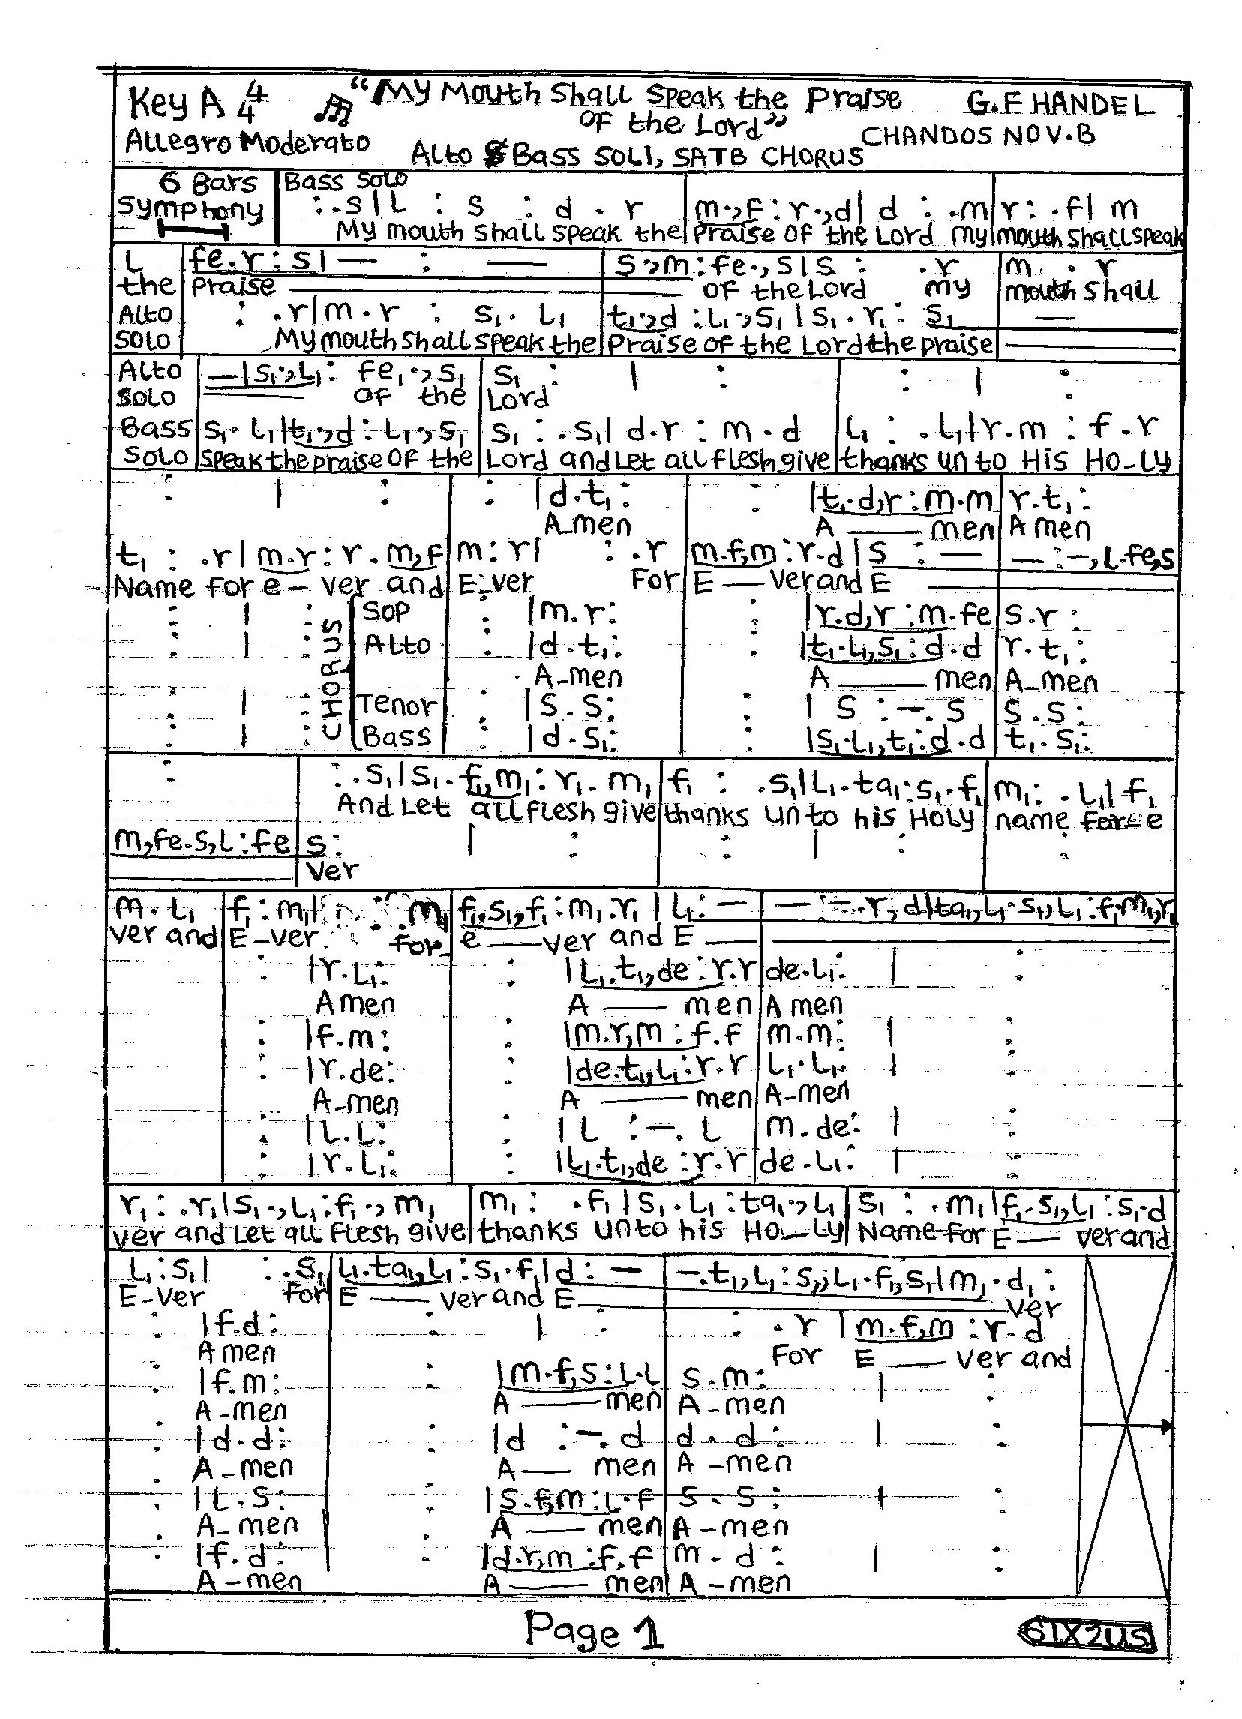 Key A 4/4 "My Mouth Shall Speak the Praise G.F HANDEL
Of the Lord" CHANDOS NOV.B
Allegro Moderato Alto & Bass SOLI, SATB CHORUS
6 Bars Bass Solo
Symphony : .s|L : s : d . r | m.,f : r.,d| d : .m | r : .f| m
My mouth Shall Speak the Praise Of the Lord My mouth Shall Speak
L | fe.r : s| — : — | s.,m : fe., s| s : .r | m . r
the Praise Of the Lord my mouth shall
Alto : .r|m.r : s₁. L₁ | t₁.,d : L₁.,s₁ | s₁. r₁ : s₁ | —
Solo My mouth Shall speak the Praise Of the Lord the praise
Alto | —|s₁.,L₁: fe₁.,s₁ | s₁ : | : | : | :
Solo Of the Lord
Bass | s₁. L₁|t₁.,d : L₁.,s₁ | s₁ : .s₁| d.r : m.d | L₁ : .L₁|r.m : f.r
Solo Speak the praise Of the Lord and Let all flesh give thanks un to His Ho-Ly
: | : | : |d.t₁: | : |t₁.d,r : m.m | r.t₁:
A-men A — men A men
t₁ : .r| m.r : r.m,f | m : r| : .r | m.f,m : r.d | s : — | — : –, L.fe,s
Name for e - ver and E-ver For E — ver and E
CHORUS
Sop : |m.r: | : |r.d,r : m.fe | s.r :
Alto : |d.t₁: | : |t₁.L₁,s₁ : d.d | r.t₁:
A-men A — men A-men
Tenor : |s.s: | : | s : –.s | s.s:
Bass : |d.s₁: | : |s₁.L₁,t₁ : d.d | t₁.s₁:
: | : .s₁|s₁.f₁,m₁ : r₁.m₁ | f₁ : .s₁|L₁.ta₁ : s₁.f₁ | m₁ : .L₁|f₁
And Let all flesh give thanks un to his Holy name for e
m,fe.s,L : fe | s : | : | : | : | :
ver
m.L₁ | f₁ : m₁| : m₁ | f₁.s₁,f₁ : m₁.r₁ | L₁ : — | — : –.r,d|ta₁,L₁.s₁,L₁ : f₁.m₁,r₁
ver and E-ver for e — ver and E —
: |r.L₁: | : |L₁.t₁,de : r.r | de.L₁: | :
A men A — men A men
: |f.m: | : |m.r,m : f.f | m.m: | :
: |r.de: | : |de.t₁,L₁ : r.r | L₁.L₁: | :
A-men A — men A-men
: |L.L: | : |L : –.L | m.de: | :
: |r.L₁: | : |L₁.t₁,de : r.r | de.L₁: | :
r₁ : .r₁|s₁.,L₁ : f₁.,m₁ | m₁ : .f₁|s₁.L₁ : ta₁.,L₁ | s₁ : .m₁|f₁.s₁,L₁ : s₁.d
ver and Let all flesh give thanks unto his Ho-Ly Name for E — ver and
L₁ : s₁| : .s₁ | L₁.ta₁,L₁ : s₁.f₁|d : — | –.t₁,L₁ : s₁,L₁.f₁,s₁|m₁.d₁ :
E-ver for E — ver and E — ver
: |f.d: | : | : | : .r |m.f,m : r.d
A men For E — ver and
: |f.m: | : |m.f,s : L.L | s.m: | :
A-men A — men A-men
: |d.d: | : |d : –.d | d.d: | :
A-men A — men A-men
: |L.s: | : |s.f,m : L.f | s.s: | :
A-men A — men A-men
: |f.d: | : |d.r,m : f.f | m.d: | :
A-men A — men A-men
Page 1 61X2US